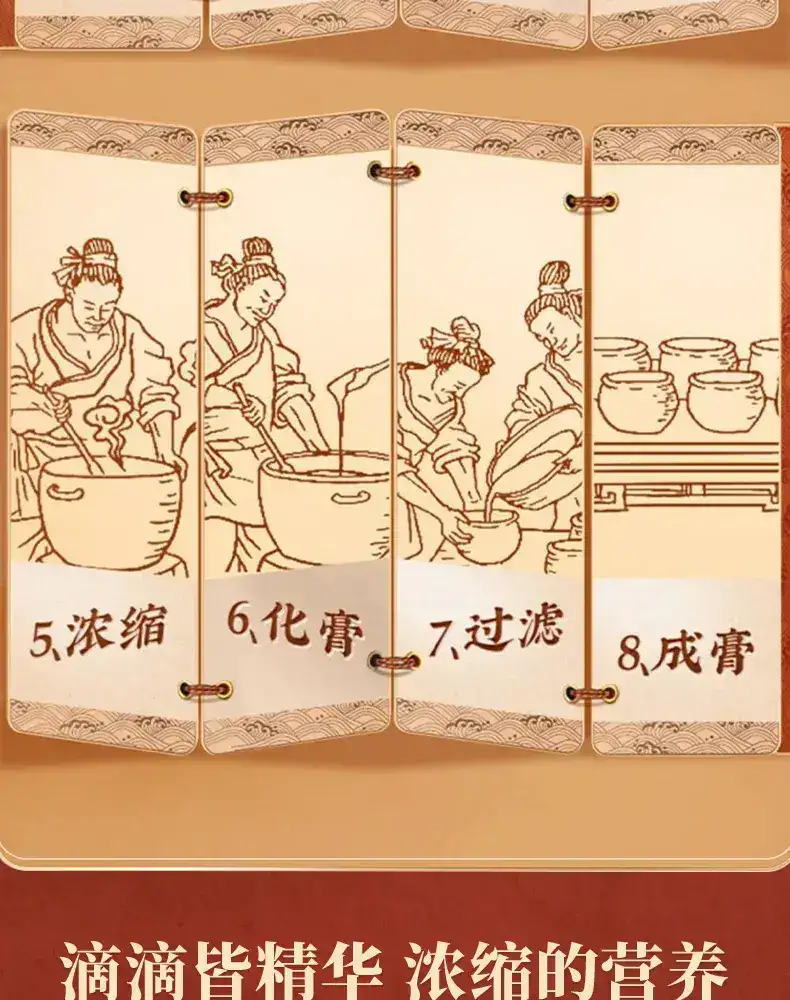 5、浓缩
6、化膏
7、过滤
8、成膏
滴滴皆精华 浓缩的营养